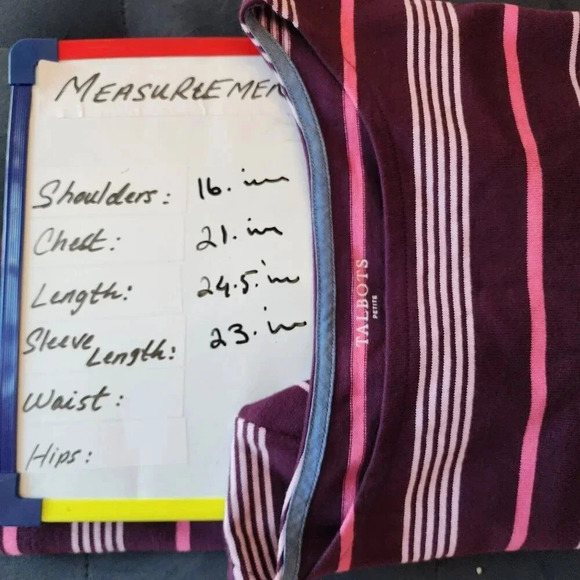 MEASUREMEN
Shoulders: 16. in
Chest: 21. in
Length: 24.5. in
Sleeve Length: 23. in
Waist:
Hips:
TALBOTS
PETITE